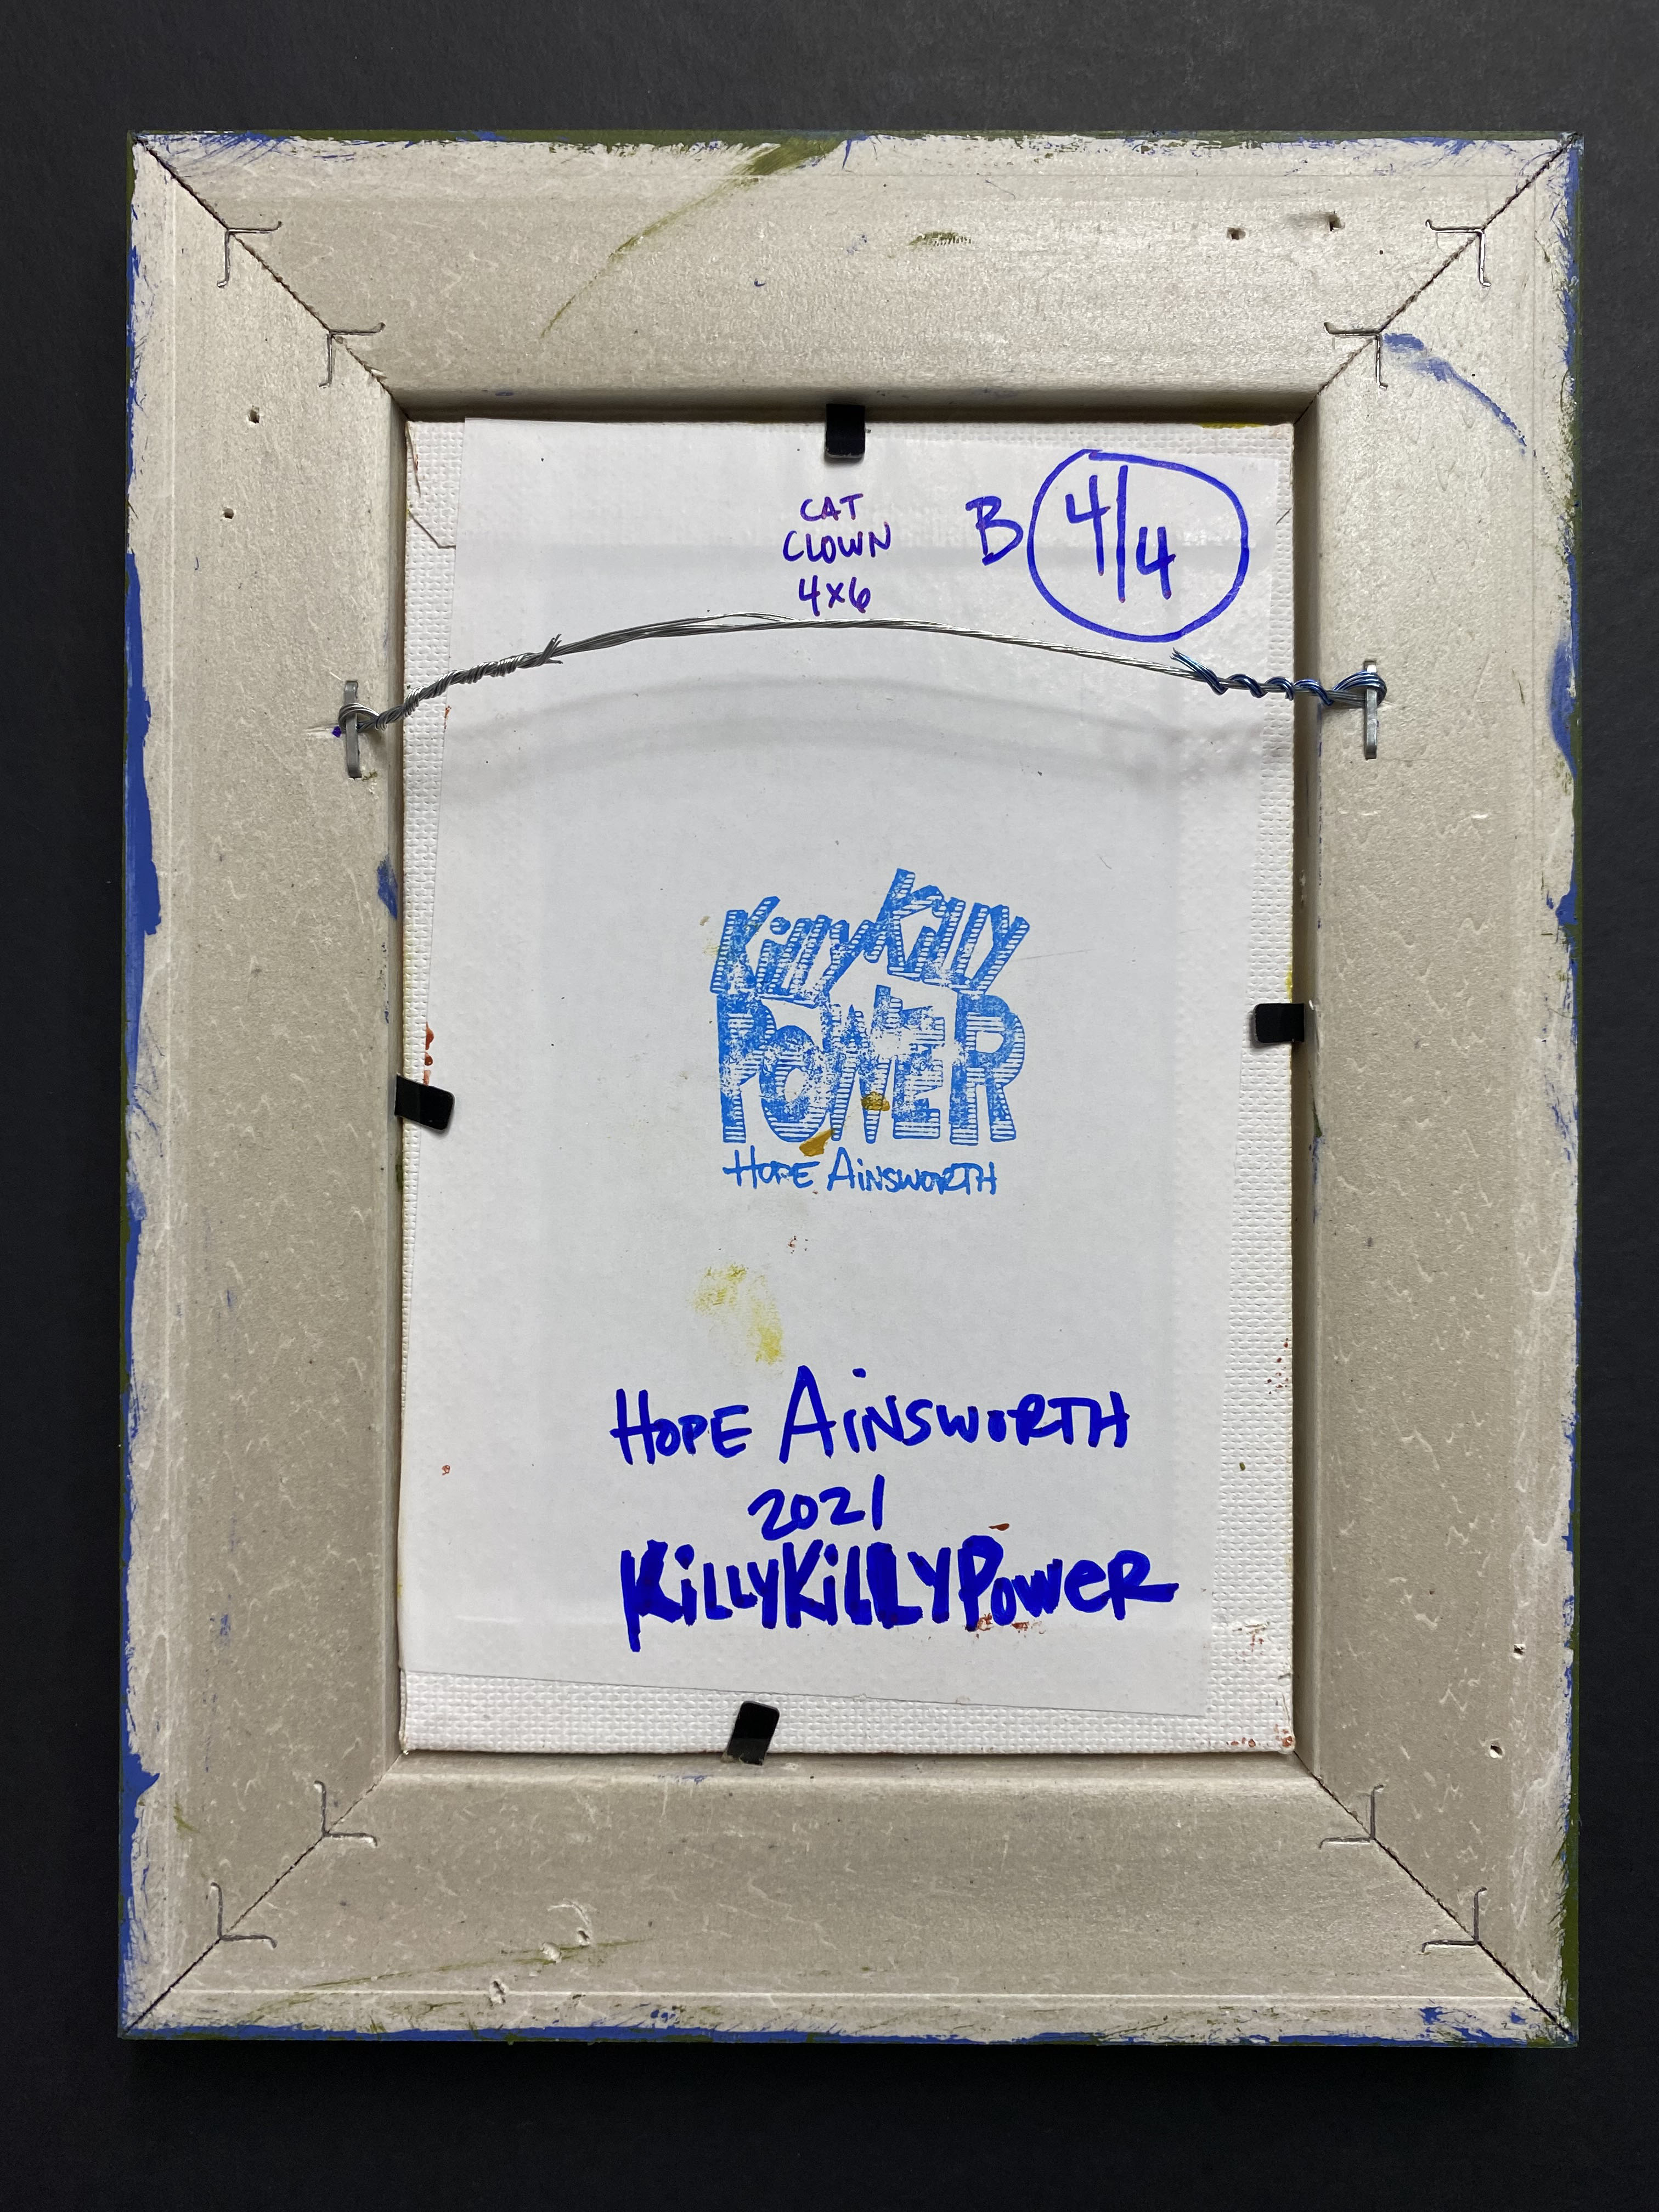 CAT
CLOWN
4x6
B 4/4
KiLLYKiLLY
POWER
HOPE AiNSWORTH
HOPE AiNSWORTH
2021
KiLLYKiLLYPOWeR